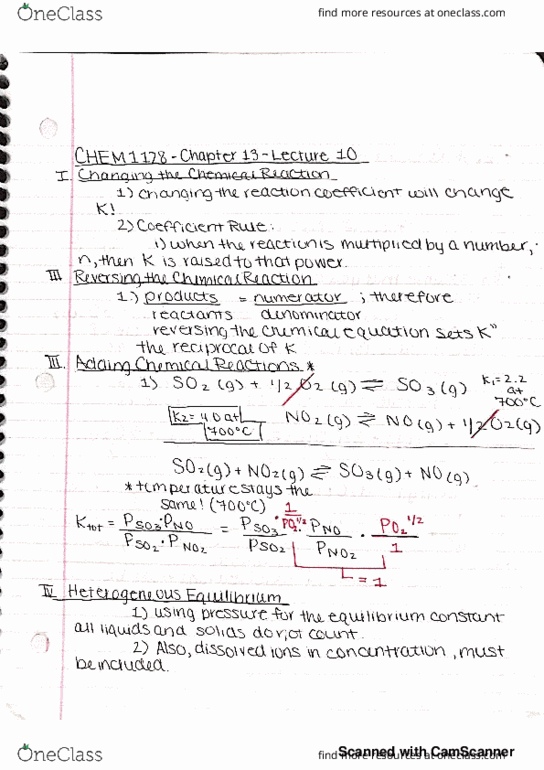 OneClass
find more resources at oneclass.com
CHEM 1128 - Chapter 13 - Lecture 10
I. Changing the Chemical Reaction
1) changing the reaction coefficient will change
K!
2) Coefficient Rule:
i) when the reaction is multiplied by a number,
n, then K is raised to that power.
III. Reversing the Chemical Reaction
1.) products = numerator ; therefore
reactants denominator
reversing the chemical equation sets K"
the reciprocal of K
III. Adding Chemical Reactions *
1) SO2 (g) + 1/2 O2 (g) ⇌ SO3 (g) K1=2.2
at
700°C
K2 = 4.0 at NO2 (g) ⇌ NO(g) + 1/2 O2(g)
700°C
SO2(g) + NO2(g) ⇌ SO3(g) + NO(g)
* temperature stays the
same! (700°C)
Ktot = PSO3·PNO / PSO2·PNO2 = PSO3 / PSO2 · 1 / PO2^1/2 · PNO / PNO2 · PO2^1/2 / 1
= 1
IV Heterogeneous Equilibrium
1) using pressure for the equilibrium constant
all liquids and solids do not count.
2) Also, dissolved ions in concentration, must
be included.
OneClass
find more resources at oneclass.com
Scanned with CamScanner